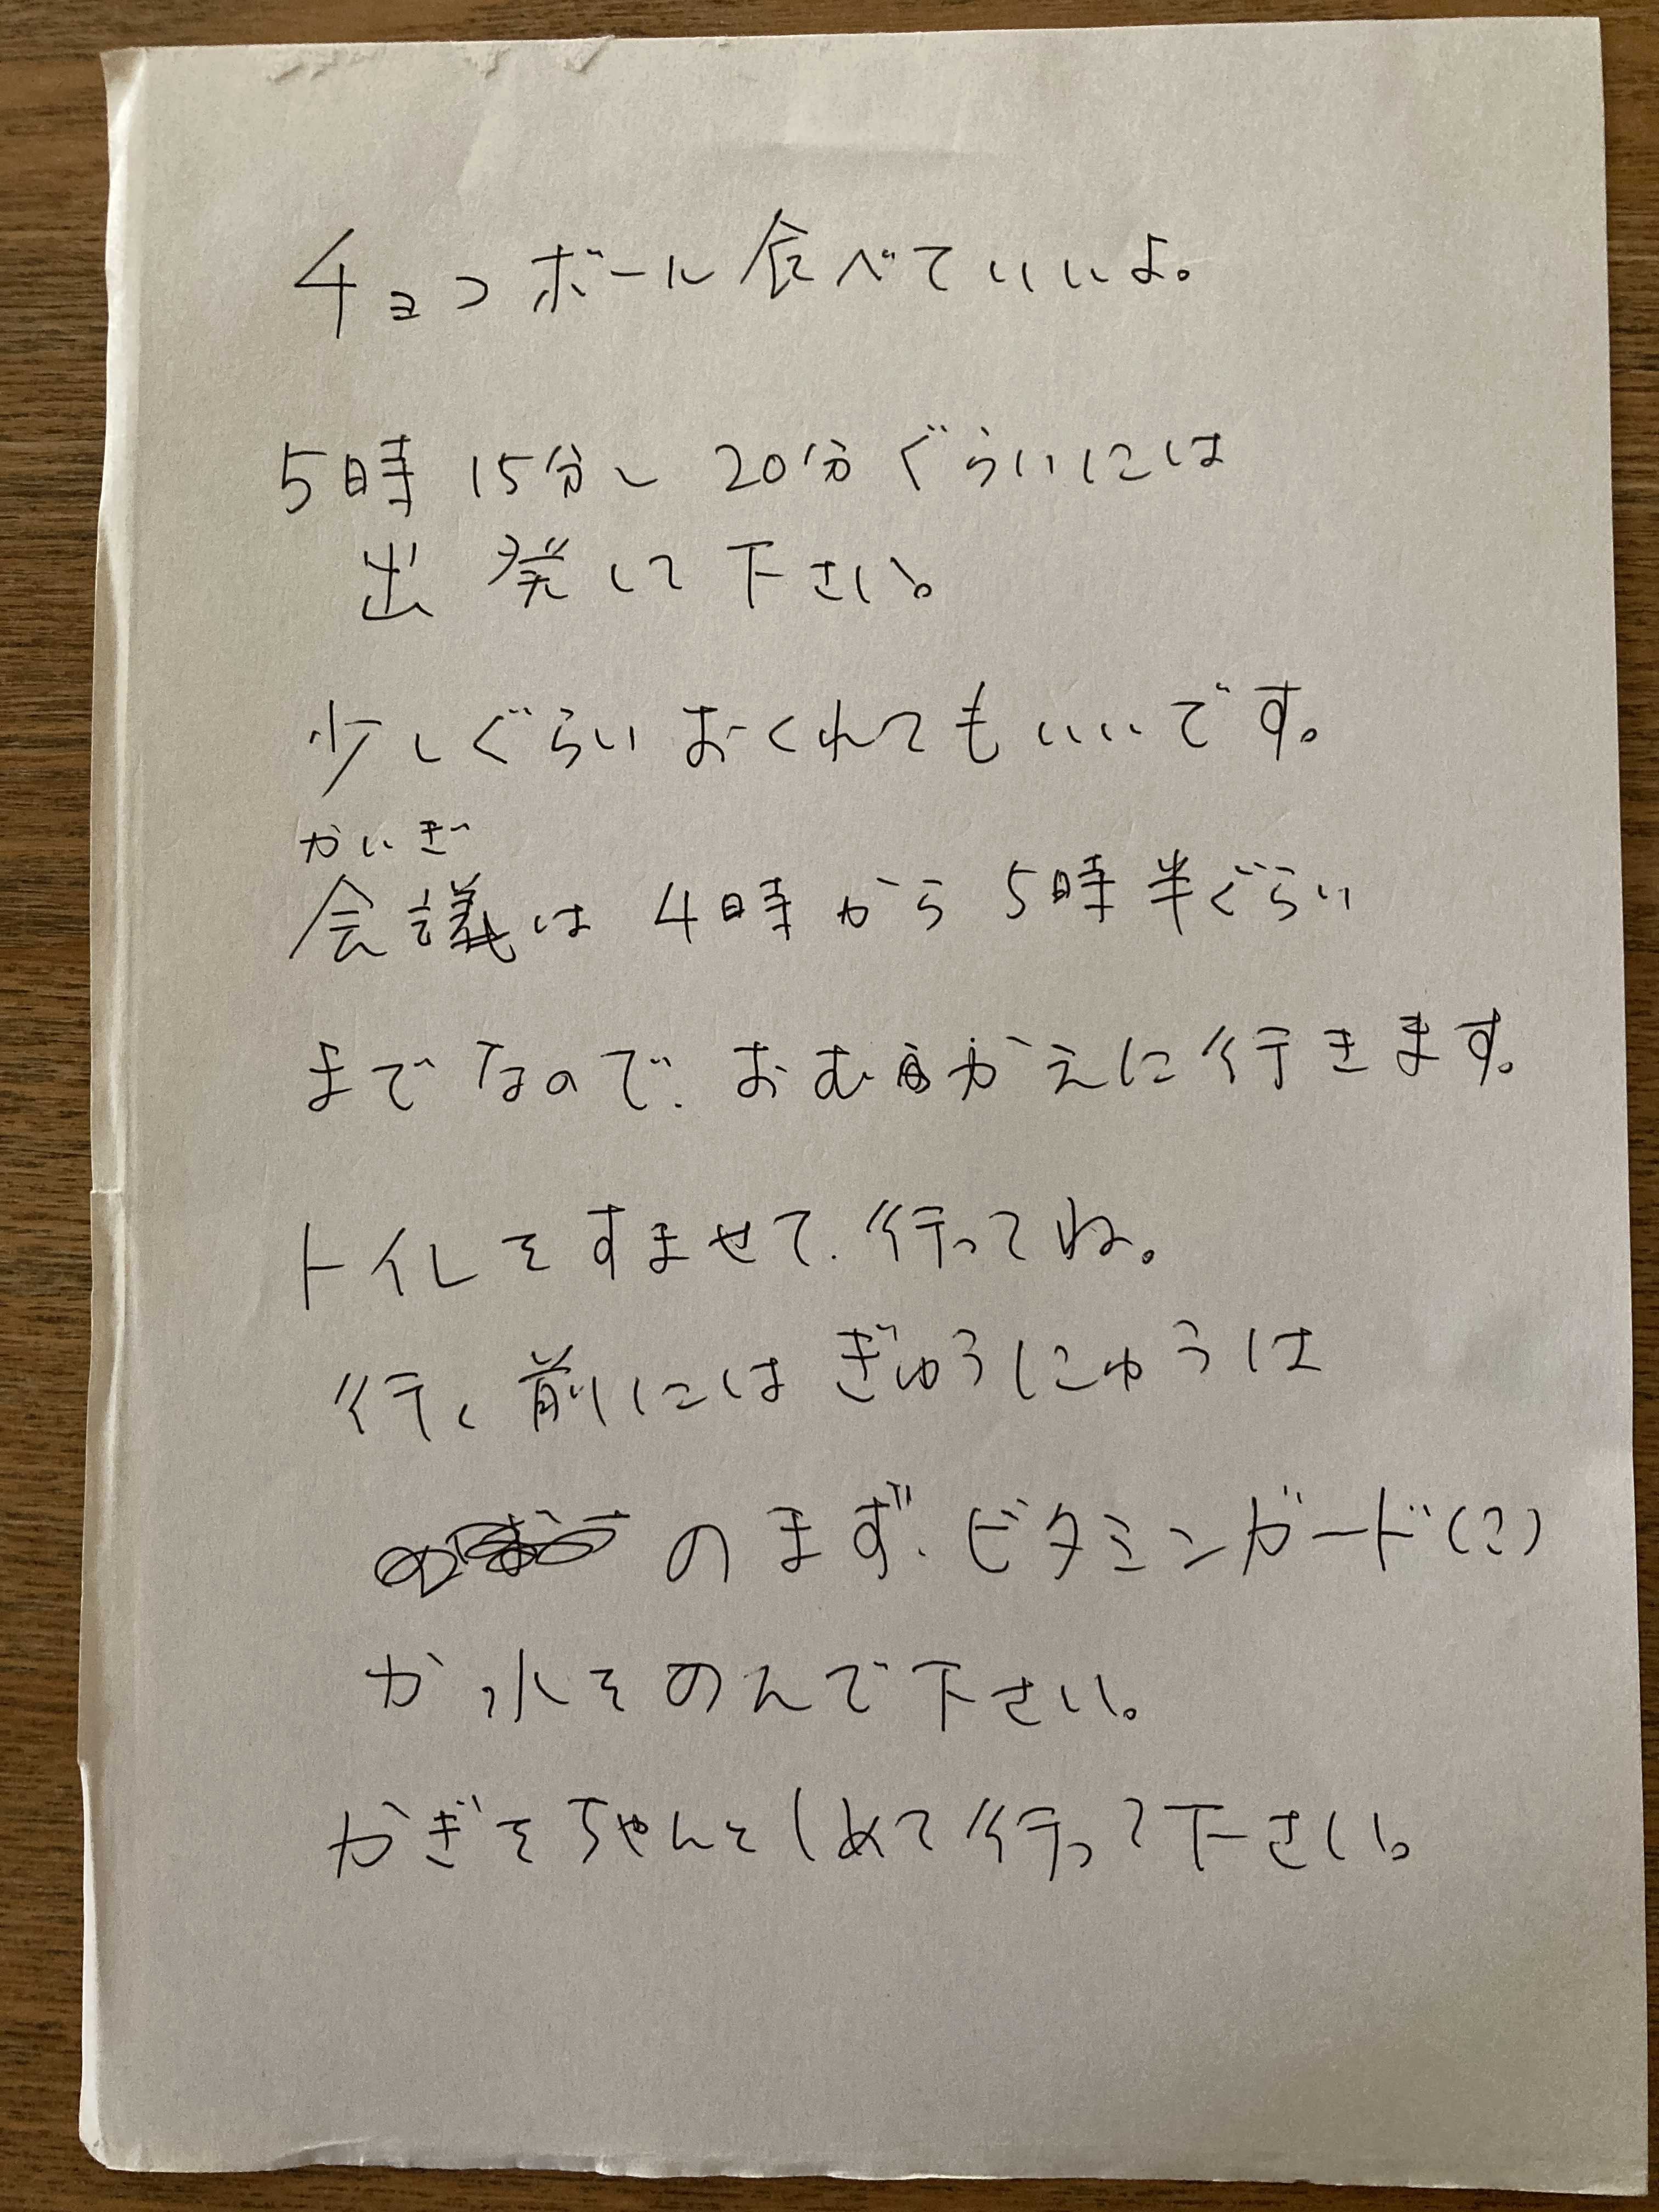 チョコボール食べていいよ。
5時15分〜20分ぐらいには
出発して下さい。
少しぐらいおくれてもいいです。
かいぎ
会議は4時から5時半ぐらい
までなので、おむかえに行きます。
トイレをすませて、行ってね。
行く前にはぎゅうにゅうは
のまず、ビタミンガード(?)
か水をのんで下さい。
かぎをちゃんとしめて行って下さい。